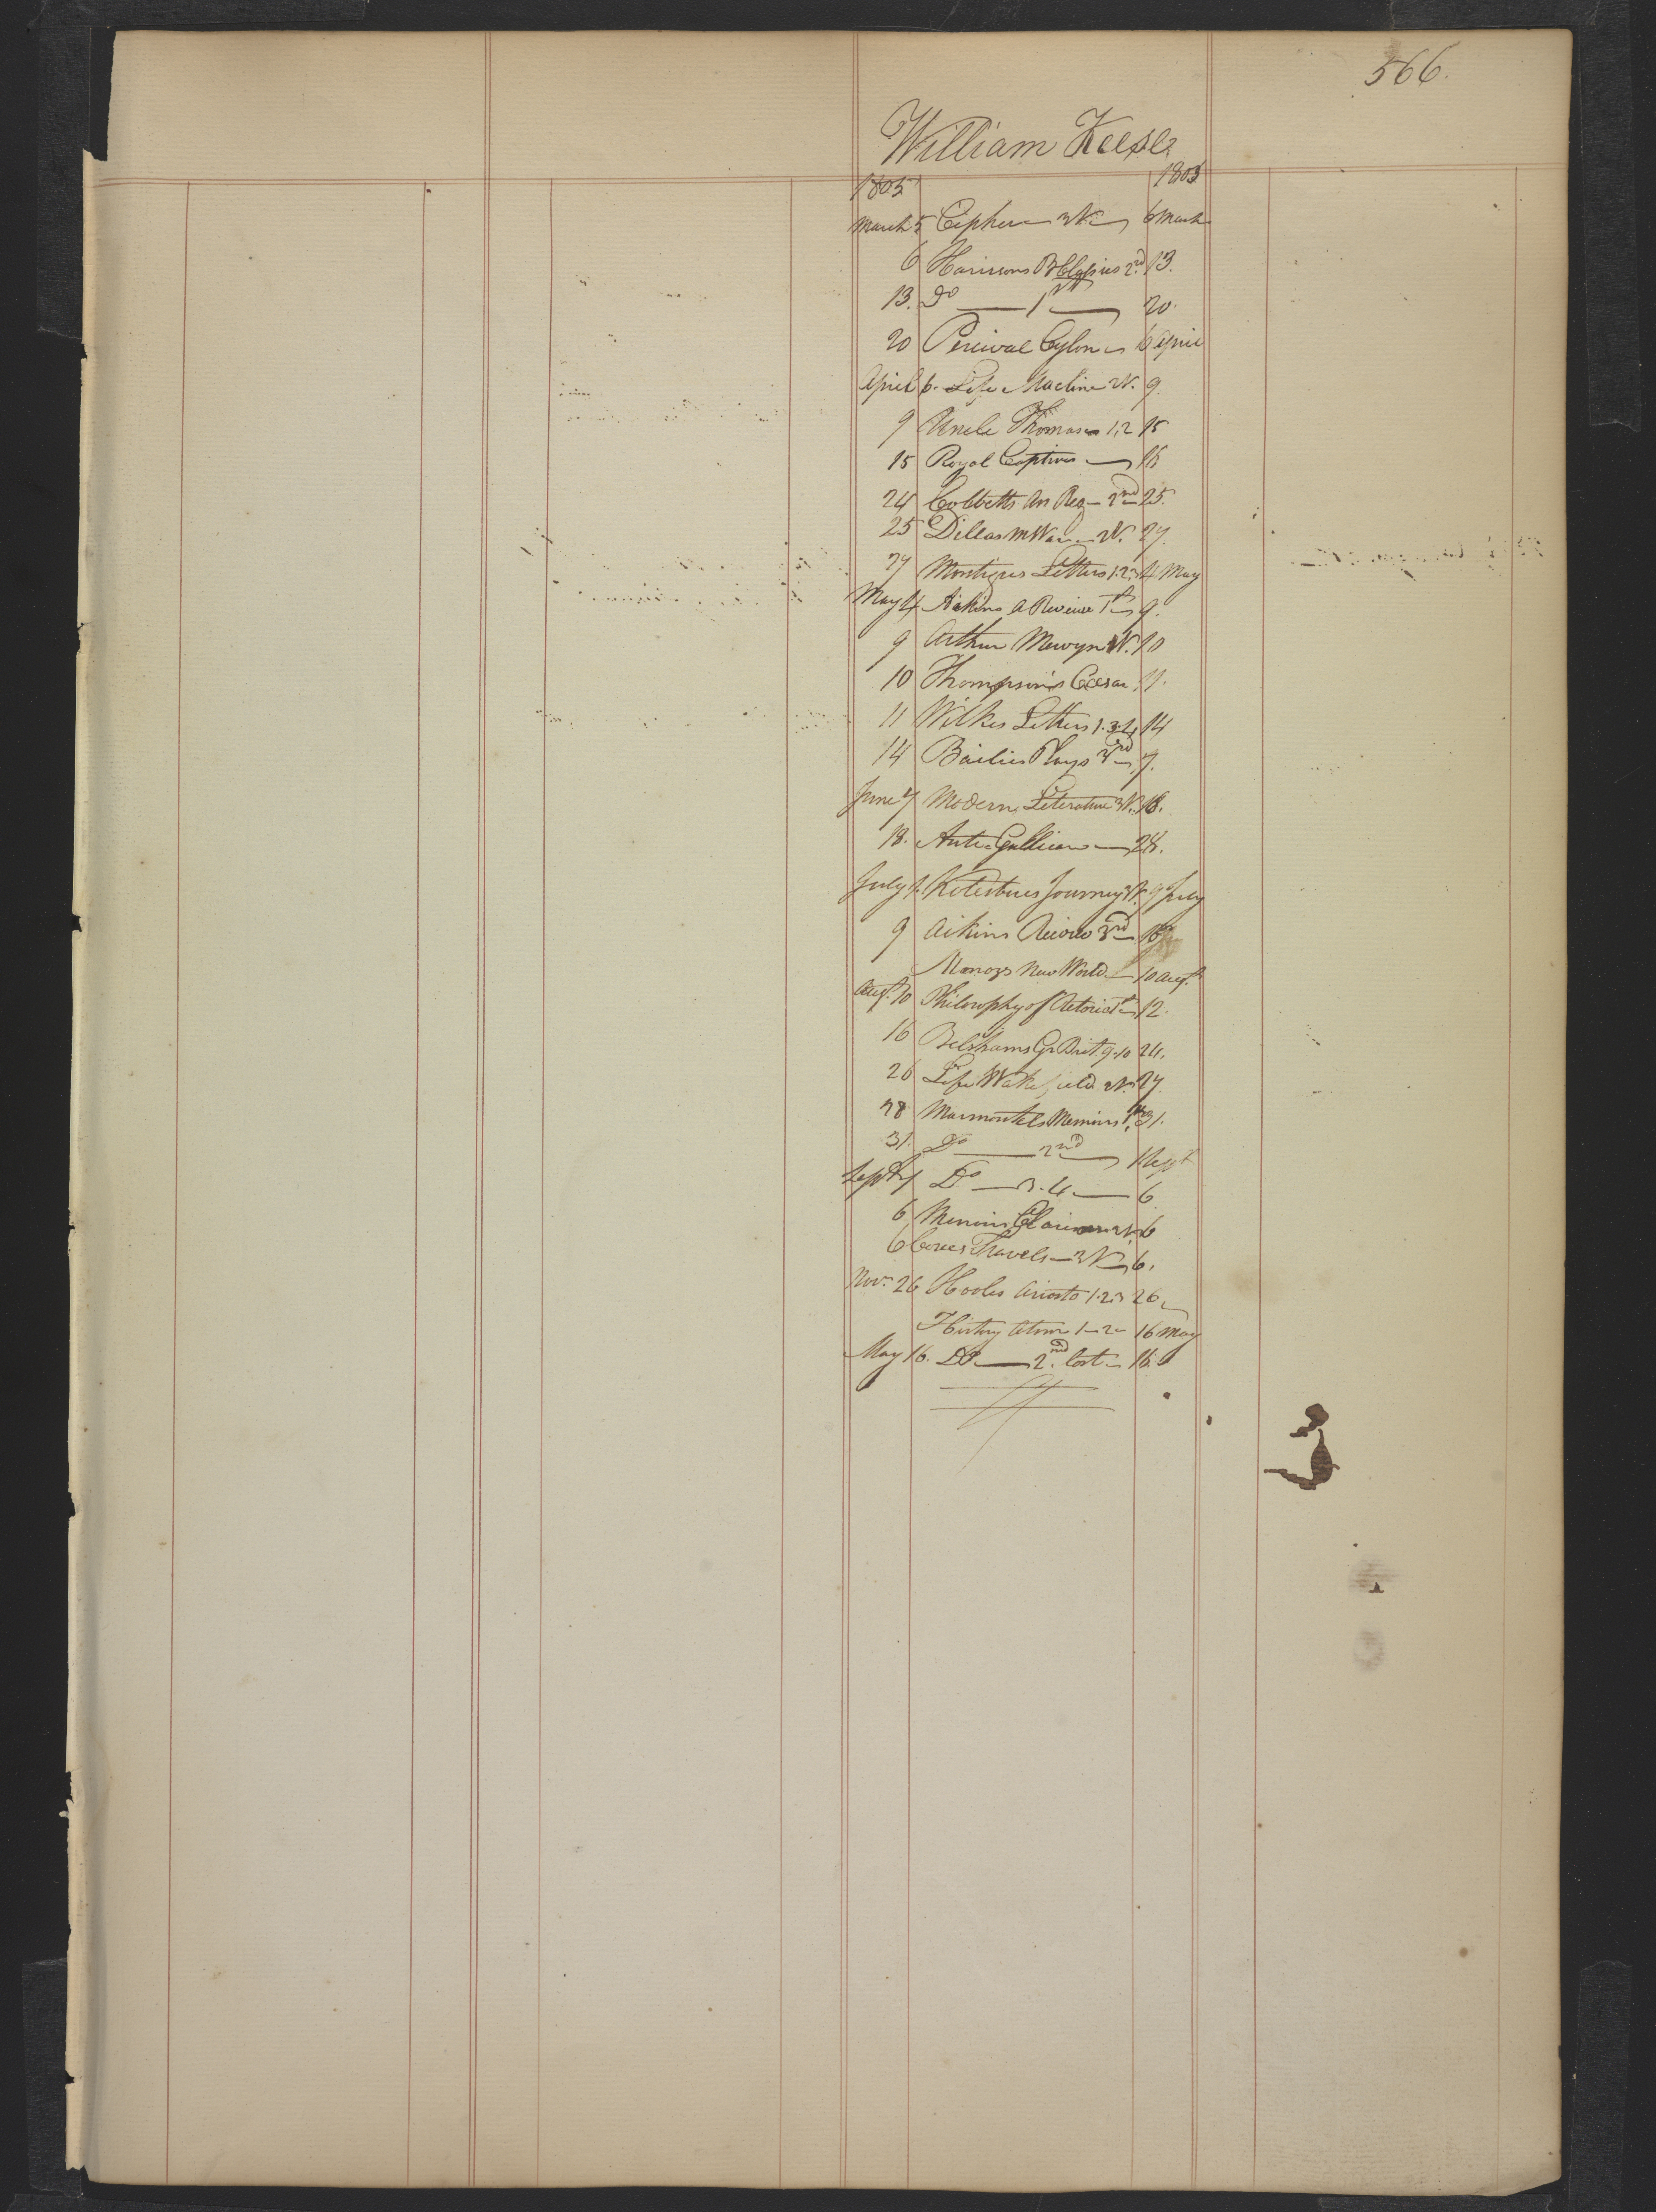 566.
William Keese
1805 1805
March 5 Cipher 3 V. 6 March
6 Harrisons 2nd 13.
13. Do 1st 20.
20 Percival Cylon 6 April
April 6. Life Macline 2V. 9.
9 Uncle Thomas 1.2 15
15 Royal Captives 16
24 Cobbetts An Reg 2nd 25.
25 Dillas 2V. 27.
27 Montigues Letters 1.2.3 4 May
May 4 Aikins A Reviewe 1st 9.
9 Arthur Mervyn 2V. 10
10 Thompson's Caesar 11.
11 Wilkes Letters 1.3.4 14
14 Bailies Plays 3rd 7.
June 7 Modern Literature 3V. 18.
18. Anti Gallican 28.
July 1 Kotesbues Journey 3V. 9 July
9 Aikins Review 3rd 16
Monozs New World 10 Augt
Augt 10 Philosophy of Retoric 1st 12.
16 Belshams Gr Brit. 9.10 24.
26 Life Wakefield 2V. 27
28 Marmontels Memoirs 1st 31.
31. Do 2nd 1 Sept
Sept 1 Do 3.4 6
6 Memoirs 2V. 6
6 Travels 3V. 6.
Nov. 26 Hooles Ariosto 1.2.3 26
History 1 2 16 May
May 16. Do 2nd lost 16.